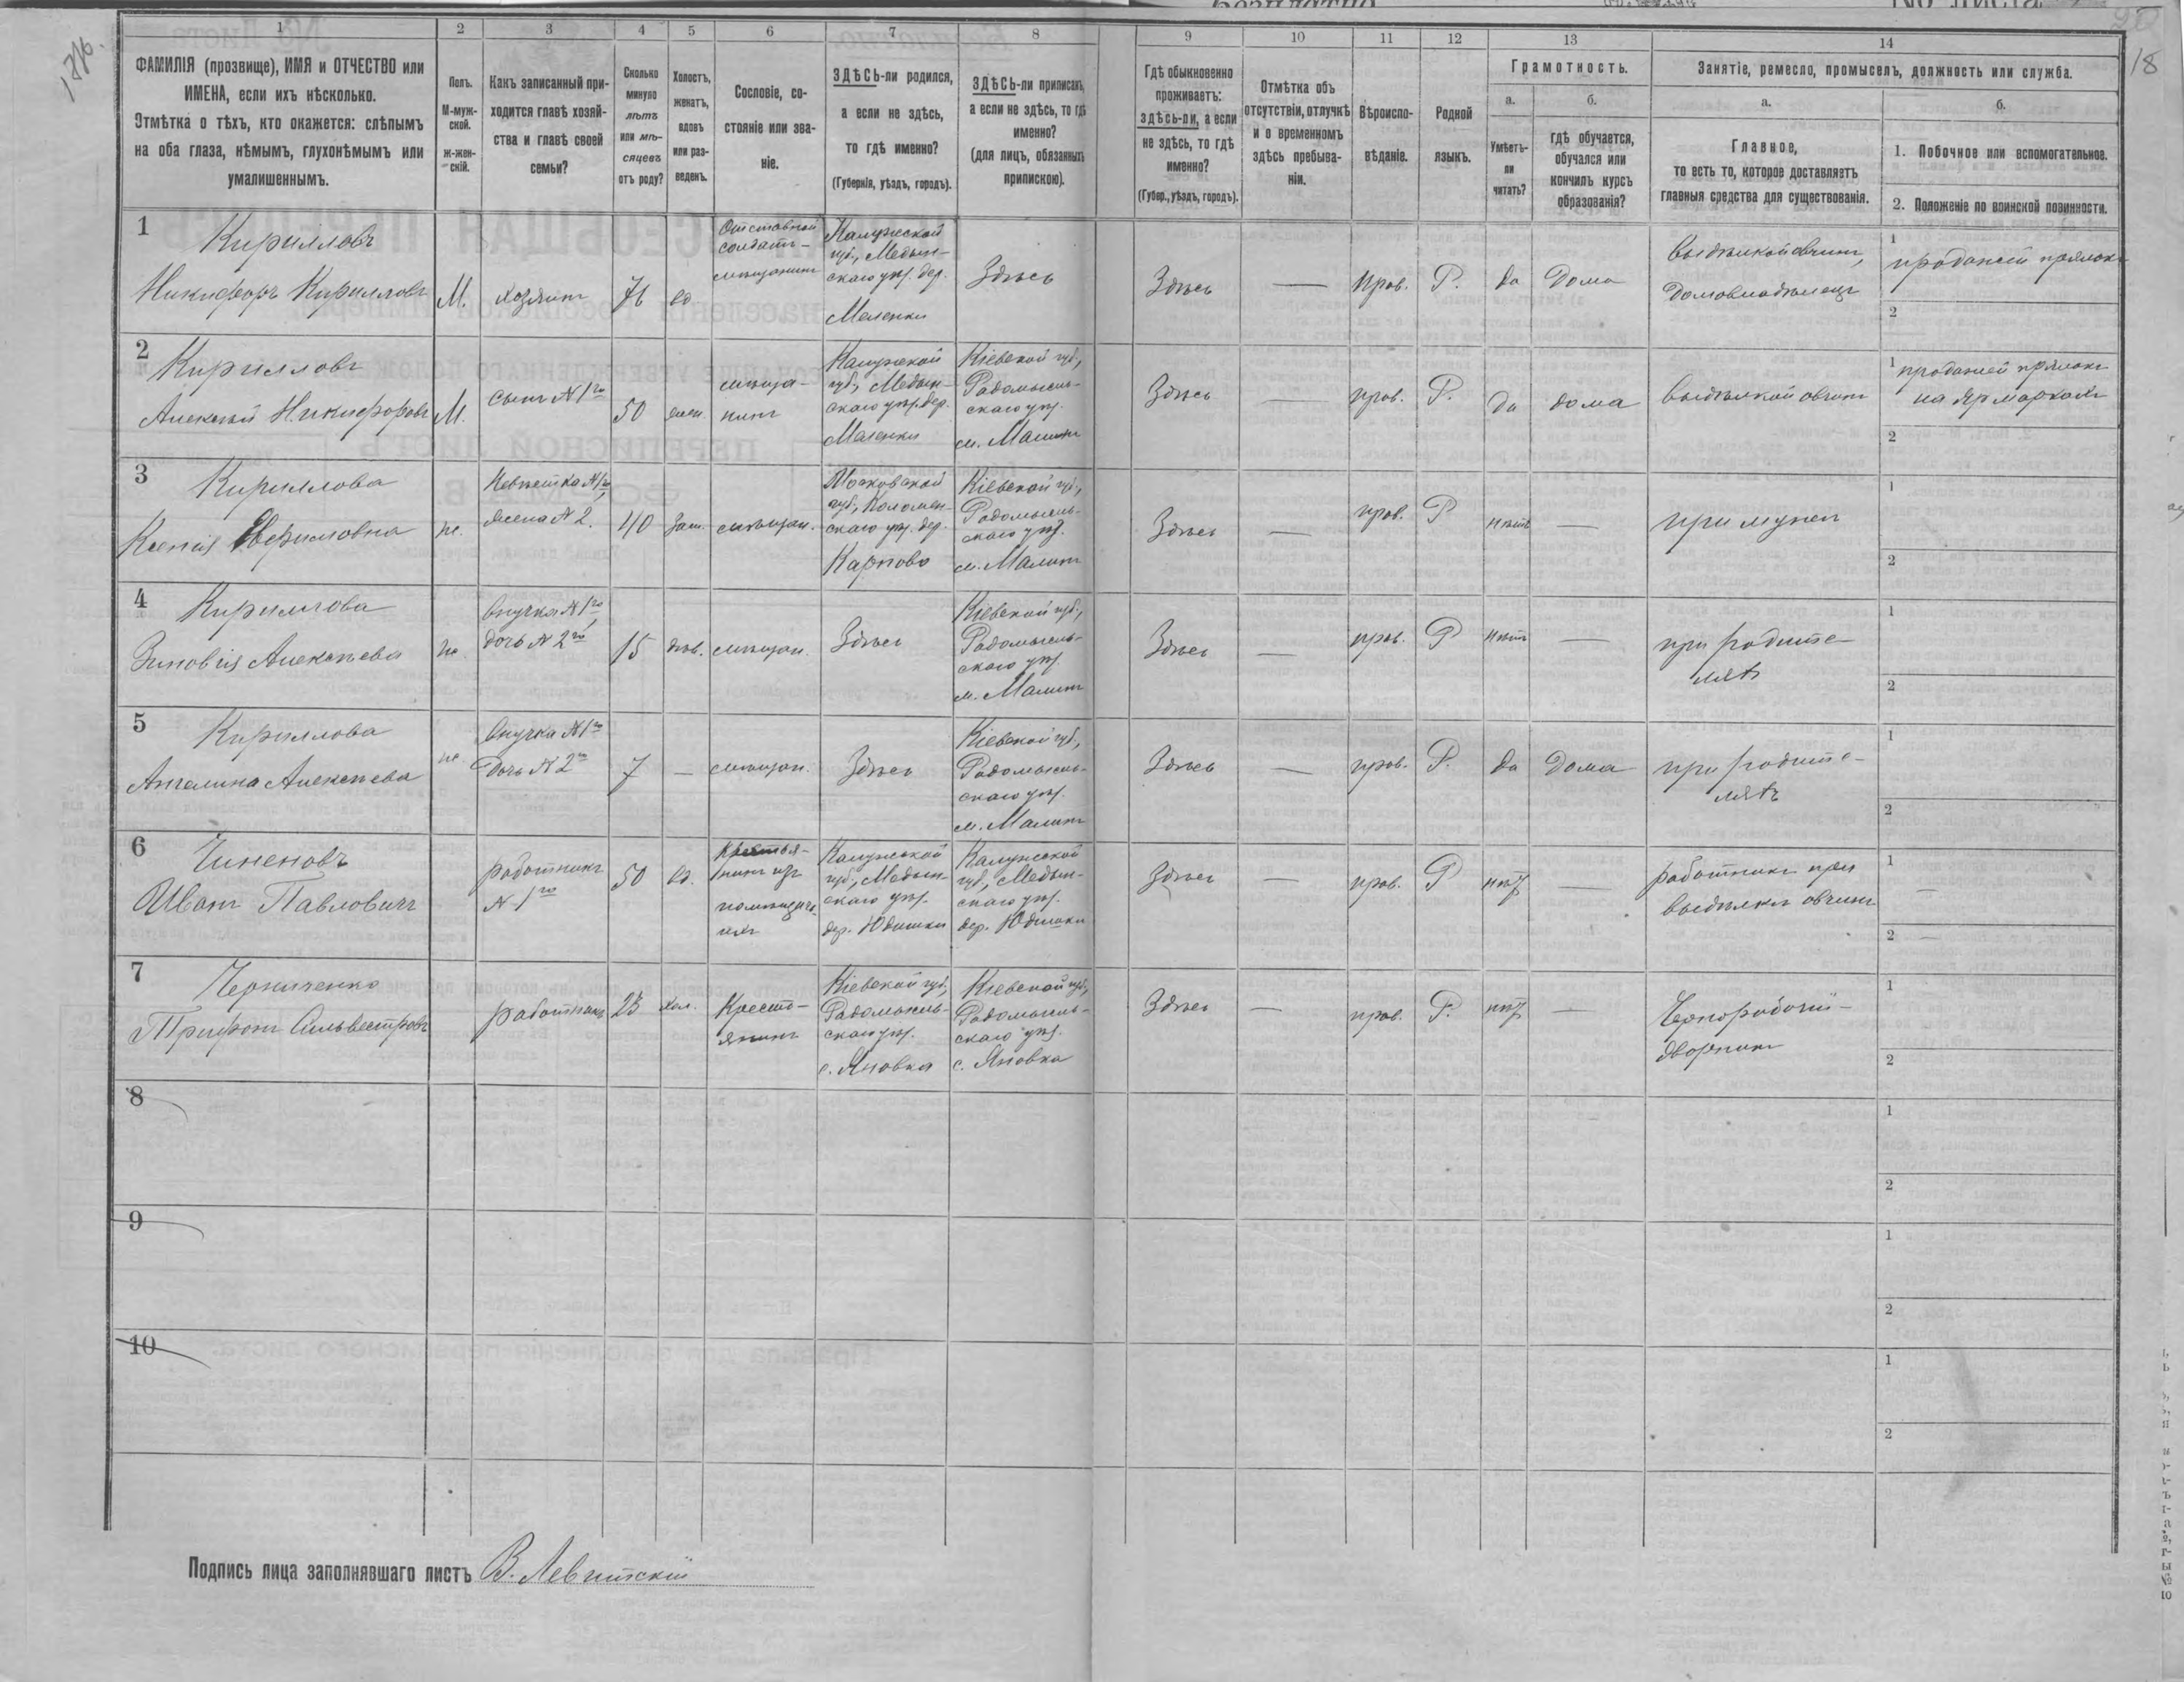 18
1 2 3 4 5 6 7 8 9 10 11 12 13 14
ФАМИЛІЯ (прозвище), ИМЯ и ОТЧЕСТВО или
ИМЕНА, если ихъ нѣсколько.
Отмѣтка о тѣхъ, кто окажется: слѣпымъ
на оба глаза, нѣмымъ, глухонѣмымъ или
умалишеннымъ.
Полъ.
М-муж-
ской.
ж-жен-
скій.
Какъ записанный при-
ходится главѣ хозяй-
ства и главѣ своей
семьи?
Сколько
минуло
лѣтъ
или мѣ-
сяцевъ
отъ роду?
Холостъ,
женатъ,
вдовъ
или раз-
веденъ.
Сословіе, со-
стояніе или зва-
ніе.
ЗДѢСЬ-ли родился,
а если не здѣсь,
то гдѣ именно?
(Губернія, уѣздъ, городъ).
ЗДѢСЬ-ли приписанъ,
а если не здѣсь, то гдѣ
именно?
(для лицъ, обязанныхъ
припискою).
Гдѣ обыкновенно
проживаетъ:
здѣсь-ли, а если
не здѣсь, то гдѣ
именно?
(Губер., уѣздъ, городъ).
Отмѣтка объ
отсутствіи, отлучкѣ
и о временномъ
здѣсь пребыва-
ніи.
Вѣроиспо-
вѣданіе.
Родной
языкъ.
Грамотность.
а.
Умѣетъ-
ли
читать?
б.
гдѣ обучается,
обучался или
кончилъ курсъ
образованія?
Занятіе, ремесло, промыселъ, должность или служба.
а.
Главное,
то есть то, которое доставляетъ
главныя средства для существованія.
б.
1. Побочное или вспомогательное.
2. Положеніе по воинской повинности.
1
Кирилловъ
Никифоръ Кирилловъ
М.
хозяинъ
76
вд
Отставной
солдатъ -
мѣщанинъ
Калужской
губ., Медын-
скаго уѣз. дер.
Меленки
Здѣсь
Здѣсь
—
Прав.
Р.
да
Дома
Выдѣлкой овчинъ,
Домовладѣлецъ
1 продажей прялокъ
2
2
Кирилловъ
Алексѣй Никифоровъ
М.
сынъ № 1го
50
жен.
мѣща-
нинъ
Калужской
губ., Медын-
скаго уѣз. дер.
Меленки
Кіевской губ.,
Радомысль-
скаго уѣз.
м. Малинъ
Здѣсь
—
прав.
Р.
Да
дома
выдѣлкой овчинъ
1 продажей прялокъ
на Ярмаркахъ
2
3
Кириллова
Ксенія Ефимовна
ж.
Невѣстка № 1го,
жена № 2.
40
Зам.
мѣщан.
Московской
губ., Коломен-
скаго уѣз. дер.
Карпово
Кіевской губ.,
Радомысль-
скаго уѣз.
м. Малинъ
Здѣсь
—
прав.
Р
нѣтъ
—
при мужѣ
1
2
4
Кириллова
Зиновія Алексѣева
ж.
Внучка № 1го,
дочь № 2го
15
дѣв.
мѣщан.
Здѣсь
Кіевской губ.,
Радомысль-
скаго уѣз.
м. Малинъ
Здѣсь
—
прав.
Р
нѣтъ
—
при родите-
ляхъ
1
2
5
Кириллова
Ангелина Алексѣева
ж.
Внучка № 1го
Дочь № 2го
7
—
мѣщан.
Здѣсь
Кіевской губ.,
Радомысль-
скаго уѣз.
м. Малинъ
Здѣсь
—
прав.
Р.
да
Дома
при родите-
ляхъ
1
2
6
Чиненовъ
Иванъ Павловичъ
работникъ
№ 1го
50
вд.
Крестья-
нинъ изъ
Калужской
губ., Медын-
скаго уѣз.
дер. Юдинки
Калужской
губ., Медын-
скаго уѣз.
дер. Юдинки
Здѣсь
—
прав.
Р
нѣт
—
работникъ при
выдѣлкѣ овчинъ
1 —
2 —
7
Черниченко
Трифонъ Сильвестровъ
работникъ
23
хол.
Кресть-
янинъ
Кіевской губ.,
Радомысль-
скаго уѣз.
с. Яновка
Кіевской губ.,
Радомысль-
скаго уѣз.
с. Яновка
Здѣсь
—
прав.
Р.
нѣт
—
Чернорабочій -
дворникъ
1
2
8
1
2
9
1
2
10
1
2
Подпись лица заполнявшаго листъ В. Левитскій